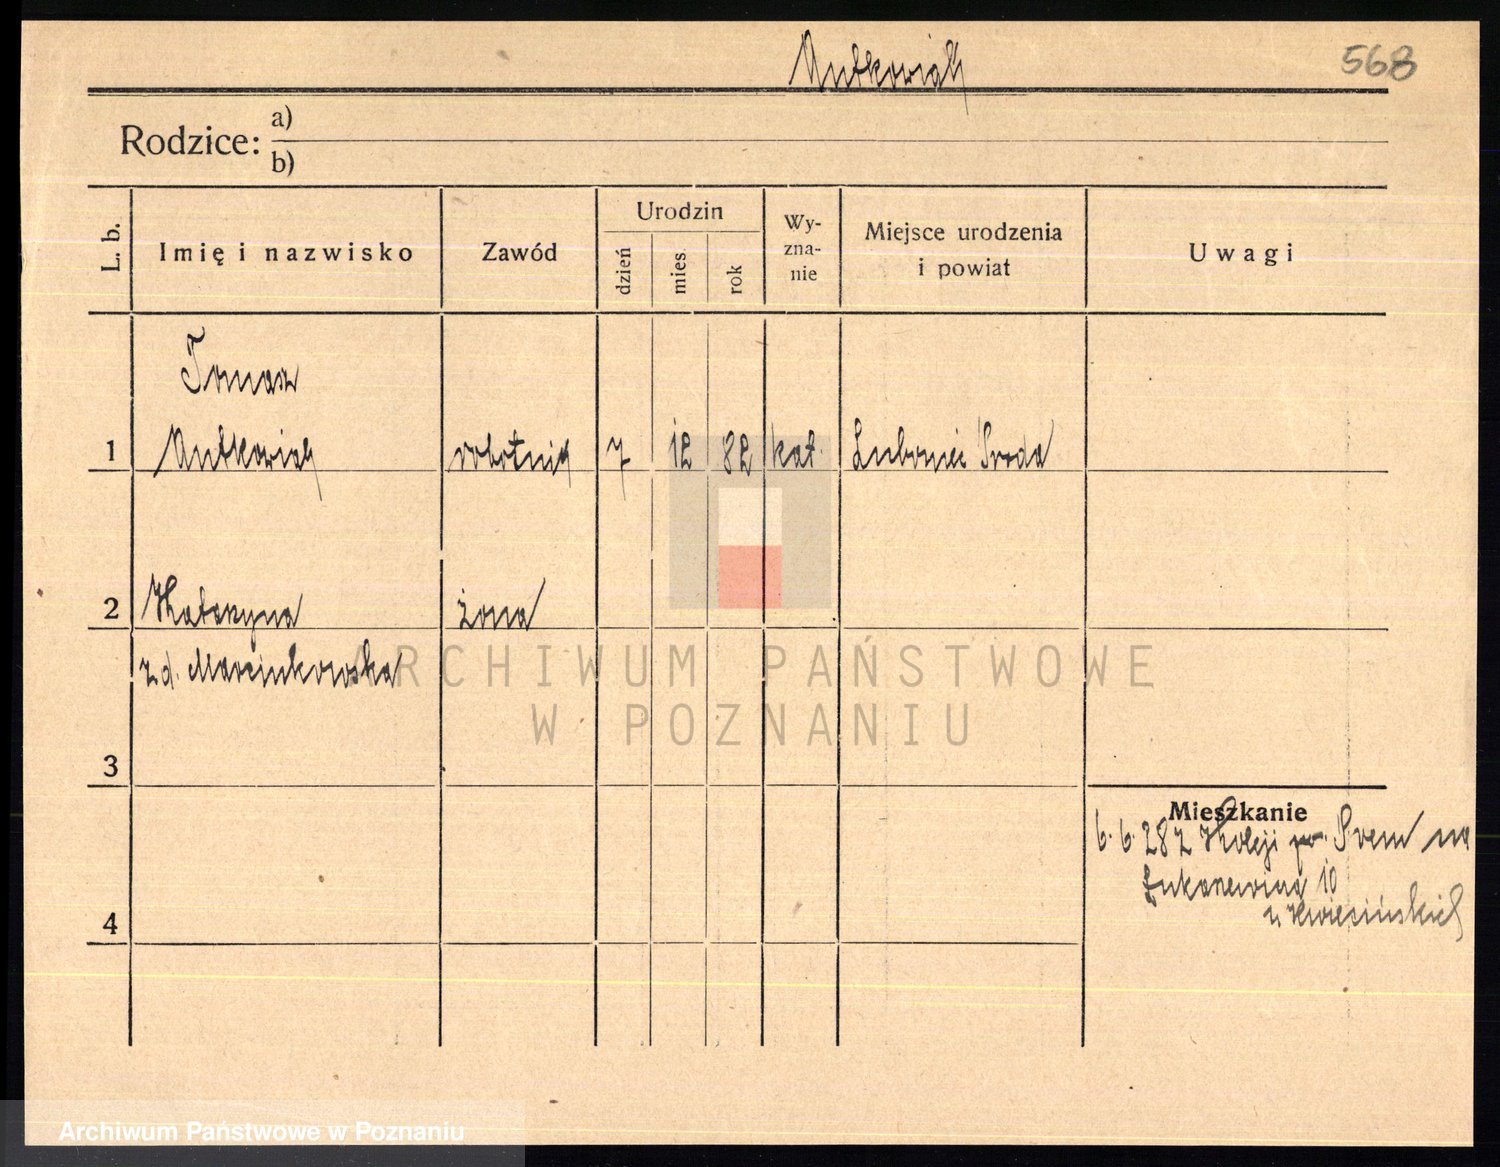 Antkowiak
568
Rodzice: a)
b)
L. b.
Imię i nazwisko
Zawód
Urodzin
dzień
mies.
rok
Wy-
zna-
nie
Miejsce urodzenia
i powiat
Uwagi
Tomasz
1 Antkowiak robotnik 7 12 82 kat. Luboniec Środa
2 Katarzyna żona
z d. Marcinkowska
3
4
Mieszkanie
6. 6. 28 z Koleji Śrem na
10
u Kwiecińskich
ARCHIWUM PAŃSTWOWE
W POZNANIU
Archiwum Państwowe w Poznaniu